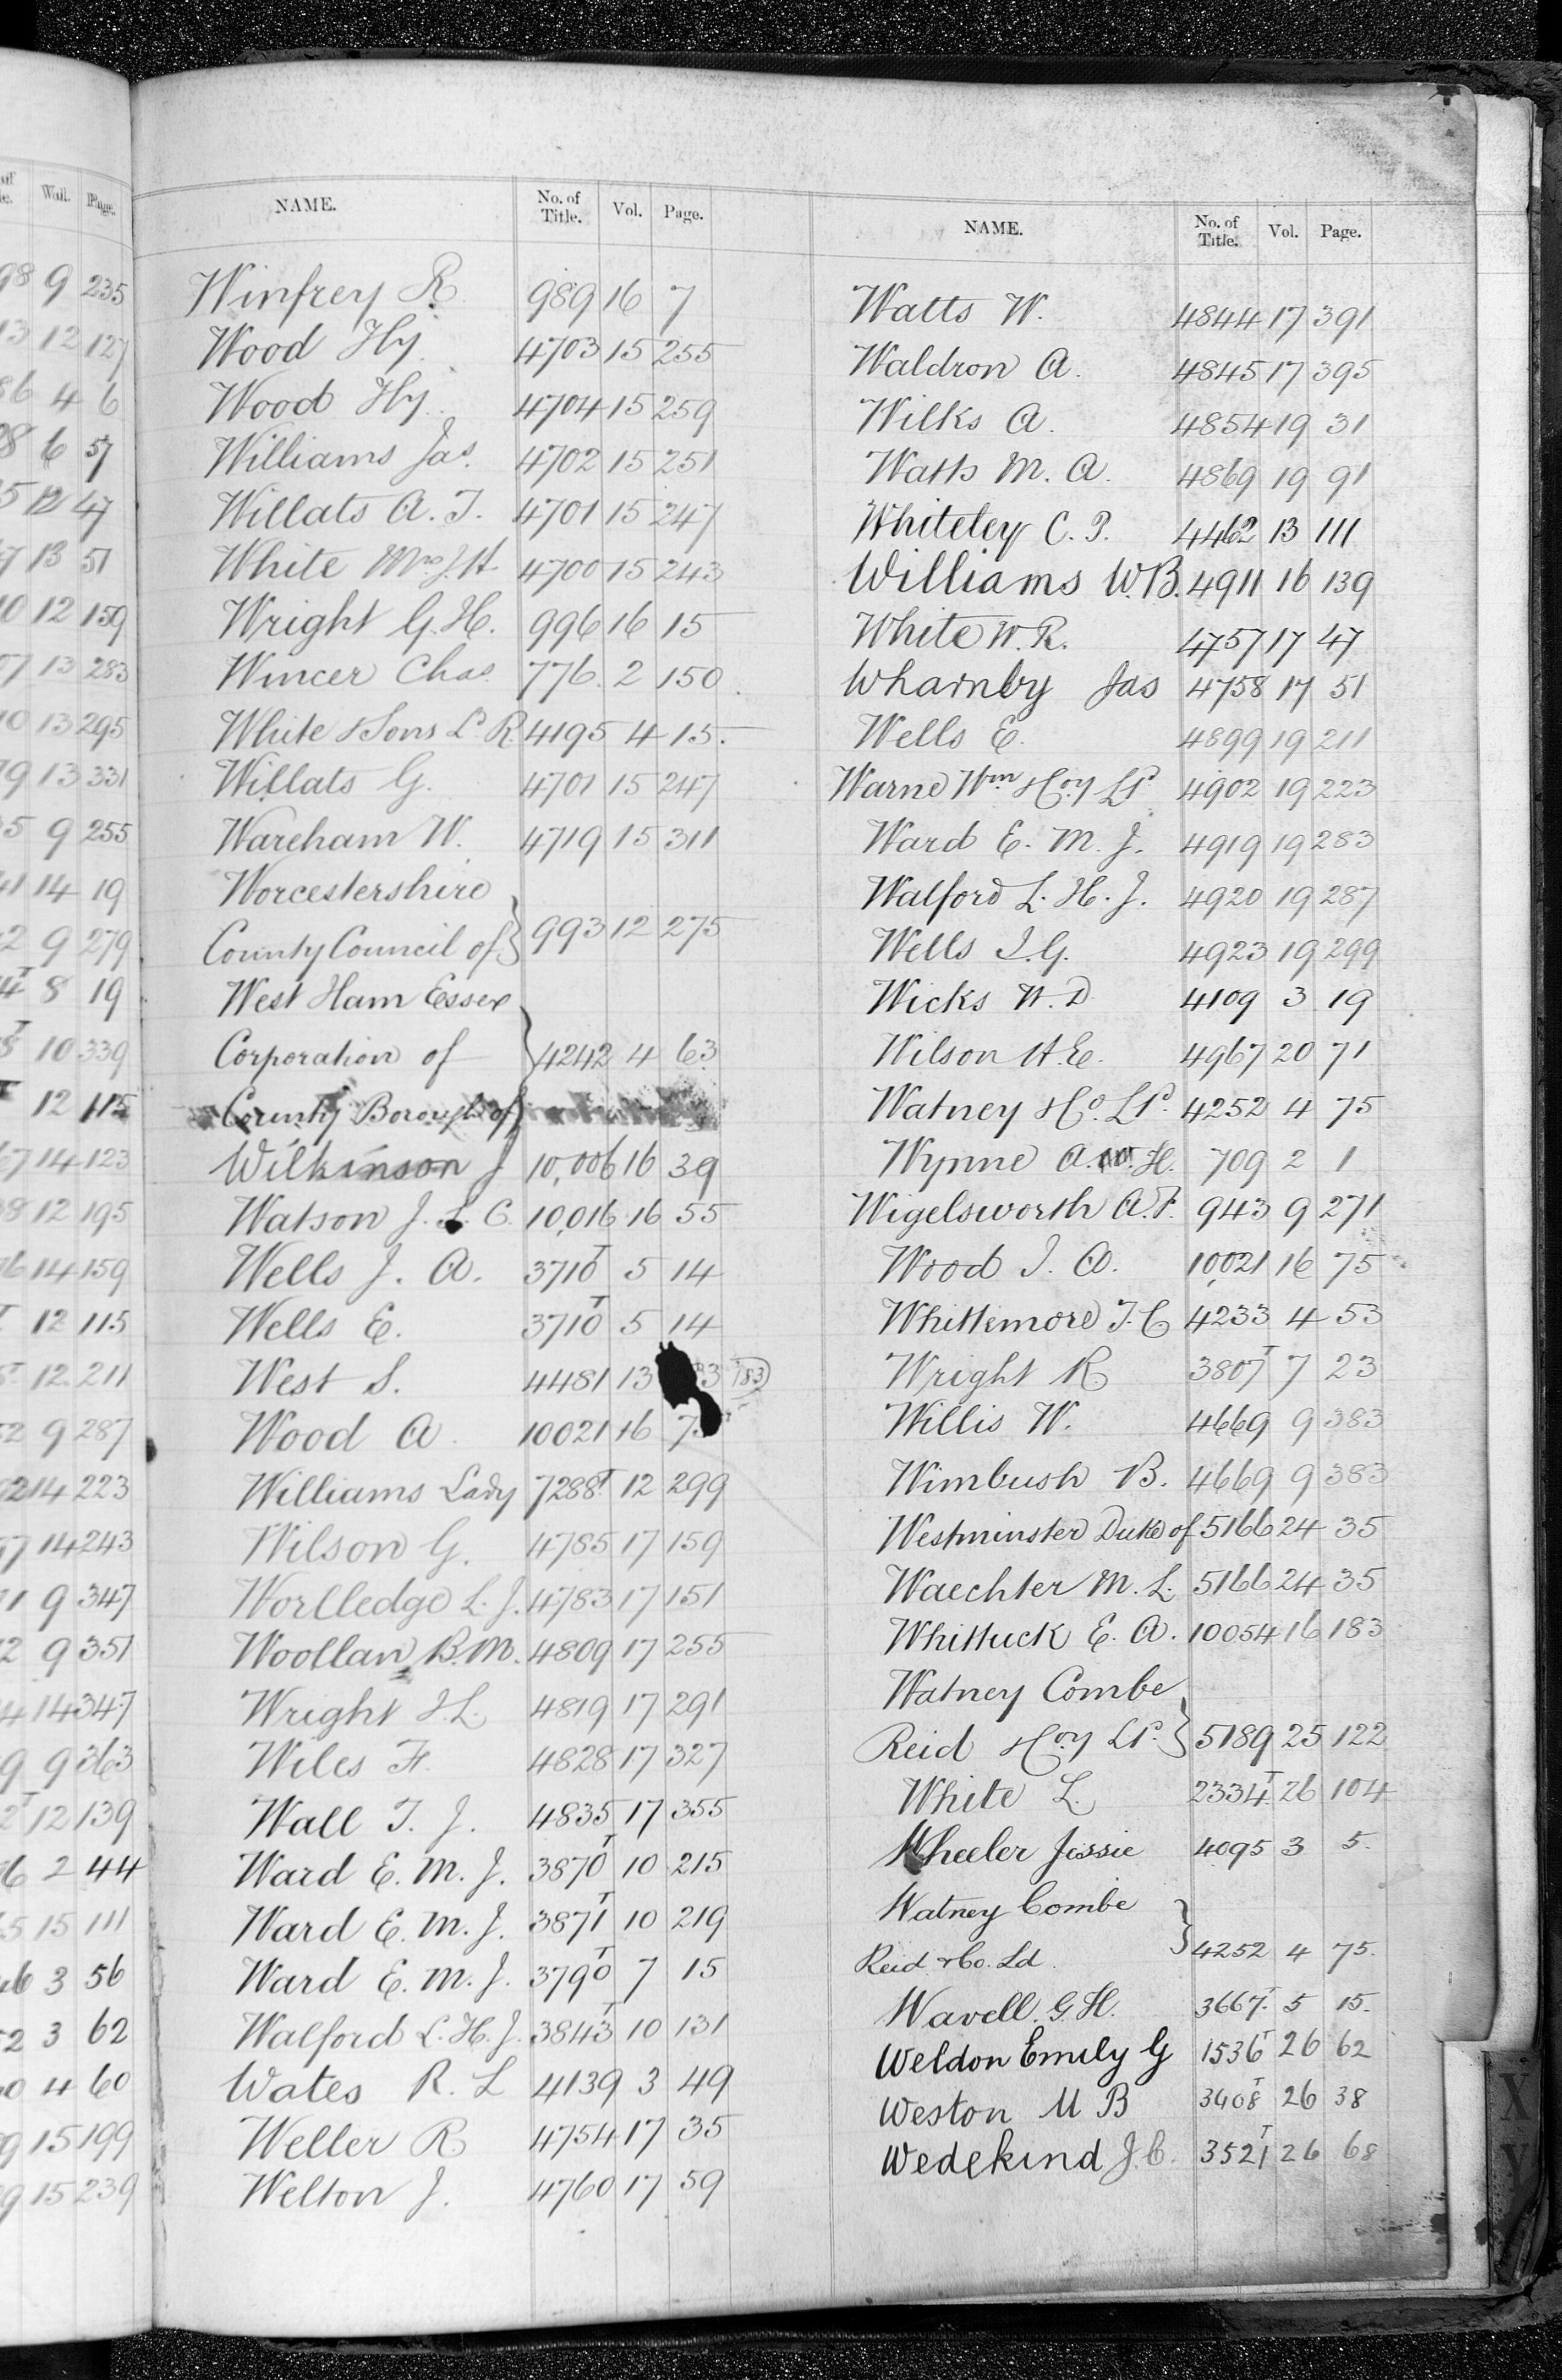 Vol. Page.
9 235
12 127
4 6
6 57
12 47
13 51
12 159
13 283
13 295
13 331
9 255
14 19
9 279
8 19
10 339
12 115
14 123
12 195
14 159
12 115
12 211
9 287
14 223
14 243
9 347
9 351
14 347
9 363
12 139
2 44
15 111
3 56
3 62
4 60
15 199
15 239
NAME. No. of Title. Vol. Page.
Winfrey R. 989 16 7
Wood Hy. 4703 15 255
Wood Hy. 4704 15 259
Williams Jas. 4702 15 251
Willats A. T. 4701 15 247
White Mrs J. H. 4700 15 243
Wright G. H. 996 16 15
Wincer Chas. 776 2 150
White & Sons Ld R. 4195 4 15.
Willats G. 4701 15 247
Wareham W. 4719 15 311
Worcestershire
County Council of } 993 12 275
West Ham Essex
Corporation of } 4242 4 63
County Borough of
Wilkinson J 10,006 16 39
Watson J. L. C. 10,016 16 55
Wells J. A. 3710T 5 14
Wells E. 3710T 5 14
West S. 4481 13 183
Wood A. 10021 16 75
Williams Lady 7288T 12 299
Wilson G. 4785 17 159
Worlledge L. J. 4783 17 151
Woollan B. M. 4809 17 255
Wright J. L. 4819 17 291
Wiles F. 4828 17 327
Wall T. J. 4835 17 355
Ward E. M. J. 3870T 10 215
Ward E. M. J. 3871T 10 219
Ward E. M. J. 3790T 7 15
Walford L. H. J. 3843T 10 131
Wates R. L 4139 3 49
Weller R 4754 17 35
Welton J. 4760 17 59
NAME. No. of Title. Vol. Page.
Watts W. 4844 17 391
Waldron A. 4845 17 395
Wilks A. 4854 19 31
Watts M. A. 4869 19 91
Whiteley C. P. 4462 13 111
Williams W. B. 4911 16 139
White W. R. 4757 17 47
Wharnby Jas 4758 17 51
Wells E. 4899 19 211
Warne Wm & Coy Ld 4902 19 223
Ward E. M. J. 4919 19 283
Walford L. H. J. 4920 19 287
Wells J. G. 4923 19 299
Wicks W. D 4109 3 19
Wilson H. E. 4967 20 71
Watney & Co. Ld. 4252 4 75
Wynne A. W. H. 709 2 1
Wigelsworth A. F. 943 9 271
Wood J. A. 10,021 16 75
Whittemore T. C 4233 4 53
Wright R. 3807T 7 23
Willis W. 4669 9 383
Wimbush B. 4669 9 383
Westminster Duke of 5166 24 35
Waechter M. L. 5166 24 35
Whittuck E. A. 10054 16 183
Watney Combe
Reid & Coy Ld. } 5189 25 122
White L. 2334T 26 104
Wheeler Jessie 4095 3 5.
Watney Combe
Reid & Co. Ld. } 4252 4 75.
Wavell. G. H. 3667T 5 15.
Weldon Emily G 1536T 26 62
Weston M B 3408T 26 38
Wedekind J. C. 3521T 26 68
X
Y